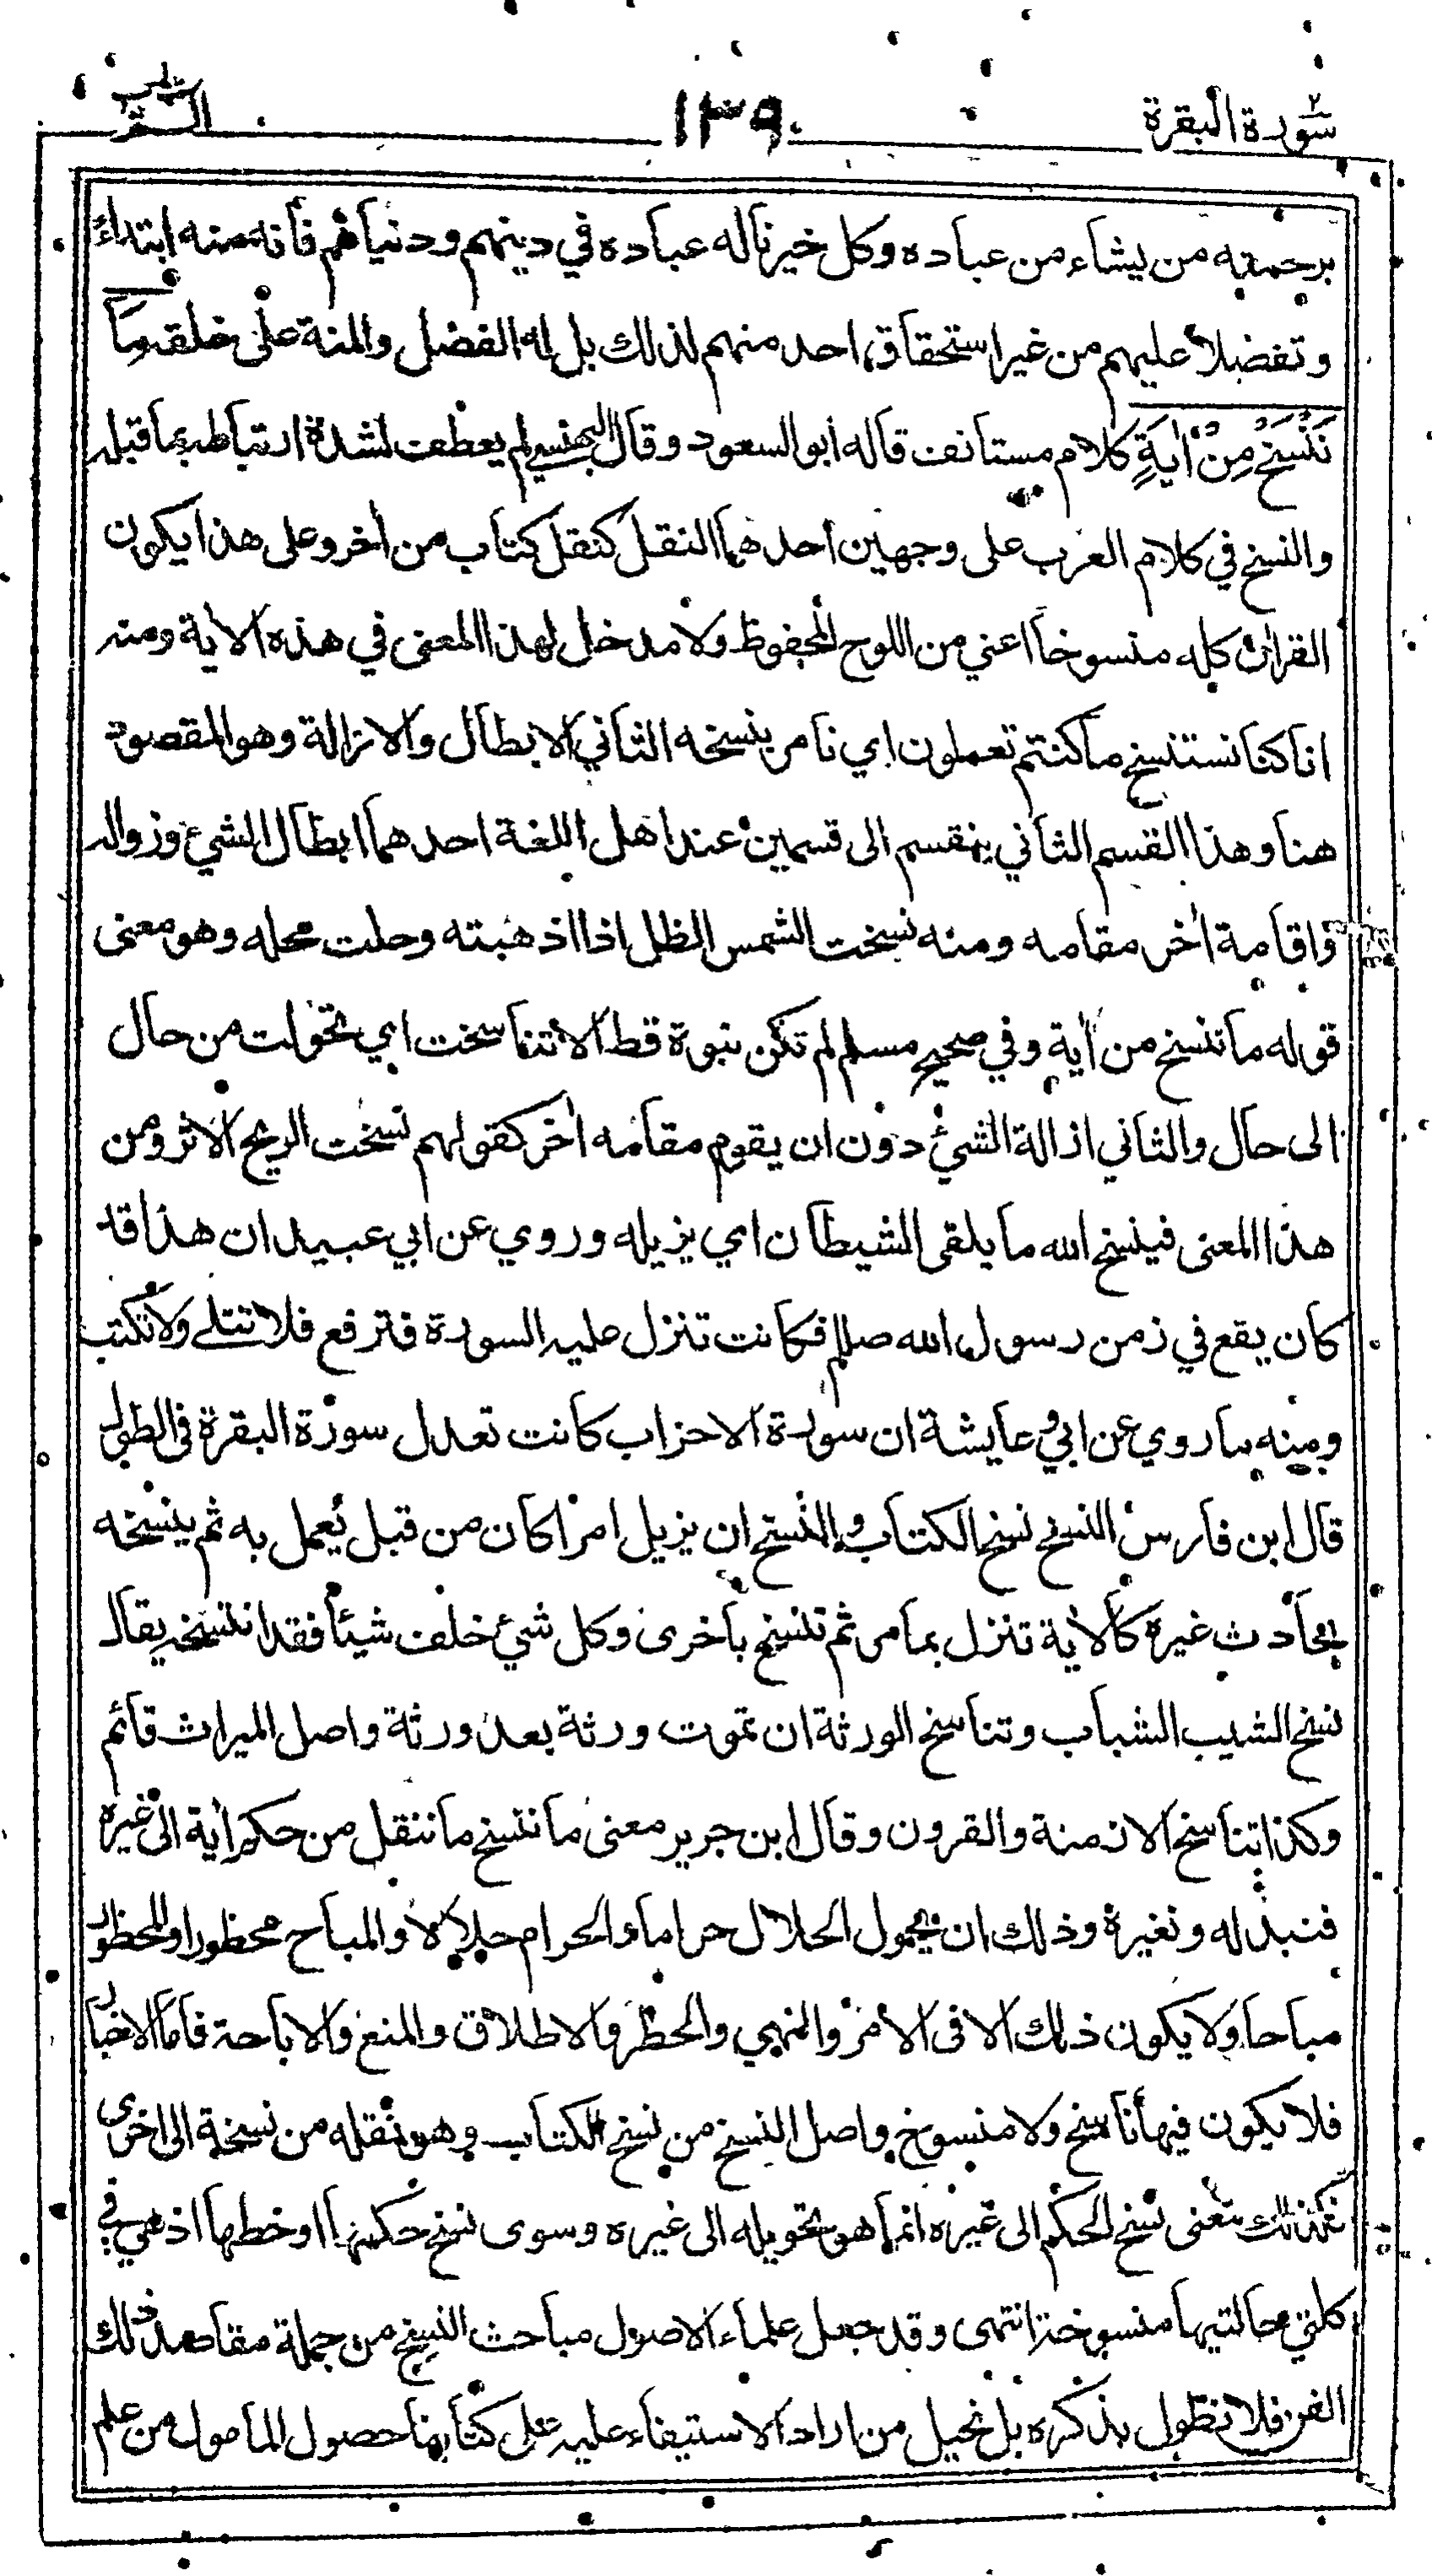 سورة البقرة ١٣٩
برحمته من يشاء من عباده وكل خير ناله عباده في دينهم ودنياهم فأنه منه ابتداء
وتفضلا عليهم من غير استحقاق احد منهم لذلك بل له الفضل والمنة على خلقه مَا
نَنْسَخْ مِنْ اٰيَةٍ كلام مستأنف قاله أبو السعود وقال لم يعطف لشدة ارتباطه بما قبله
والنسخ في كلام العرب على وجهين احدهما النقل كنقل كتاب من أخر وعلى هذا يكون
القرأن كله منسوخا اعني من اللوح المحفوظ ولا مدخل لهذا المعنى في هذه الاية ومنه
انا كنا نستنسخ ما كنتم تعملون اي نامر بنسخه الثاني الابطال والازالة وهو المقصود
هنا وهذا القسم الثاني ينقسم الى قسمين عند اهل اللغة احدهما ابطال الشيء وزواله
واقامة أخر مقامه ومنه نسخت الشمس الظل اذا اذهبته وحلت محله وهو معنى
قوله ما ننسخ من أية وفي صحيح مسلم لم تكن نبوة قط الا تناسخت اي تحولت من حال
الى حال والثاني ازالة الشيء دون ان يقوم مقامه أخر كقولهم نسخت الريح الاثر ومن
هذا المعنى فينسخ الله ما يلقى الشيطان اي يزيله وروي عن ابي عبيد ان هذا قد
كان يقع في زمن رسول الله صللم فكانت تنزل عليه السورة فترفع فلا تتلى ولا تكتب
ومنه ما روي عن ابي وعايشة ان سورة الاحزاب كانت تعدل سورة البقرة في الطول
قال ابن فارس النسخ نسخ الكتاب والنسخ ان يزيل امرا كان من قبل يُعمل به ثم ينسخه
بحادث غيره كالاية تنزل بامر ثم تنسخ باخرى وكل شيء خلف شيئا فقد انتسخه يقال
نسخ الشيب الشباب وتناسخ الورثة ان تموت ورثة بعد ورثة واصل الميراث قائم
وكذا تناسخ الازمنة والقرون وقال ابن جرير معنى ما ننسخ ما ننقل من حكم أية الى غيره
فنبدله ونغيره وذلك ان يحول الحلال حراما والحرام حلالا والمباح محظورا والمحظور
مباحا ولا يكون ذلك الا في الامر والنهي والحظر والاطلاق والمنع والاباحة فاما الاخبار
فلا يكون فيها ناسخ ولا منسوخ واصل النسخ من نسخ الكتاب وهو نقله من نسخة الى اخرى
فكذلك معنى نسخ الحكم الى غيره انما هو تحويله الى غيره وسوى نسخ حكمها او خطها اذ هي في
كلتي حالتيها منسوخة انتهى وقد جعل علماء الاصول مباحث النسخ من جملة مقاصد ذلك
الفن فلا نطول بذكره بل نحيل من اراد الاستيفاء عليه على كتابنا حصول المامول من علم